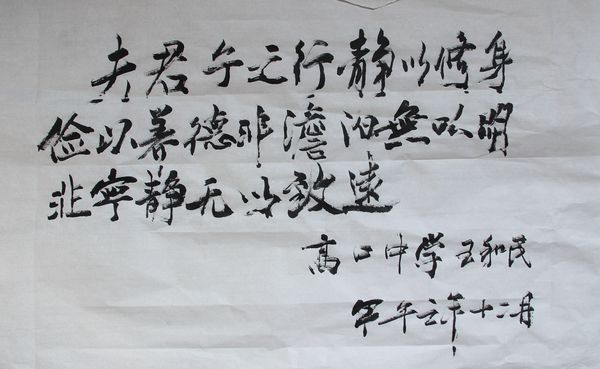 夫君子之行静以修身
俭以养德非澹泊無以明
非寧静无以致遠
高口中学王和民
甲午之年十二月